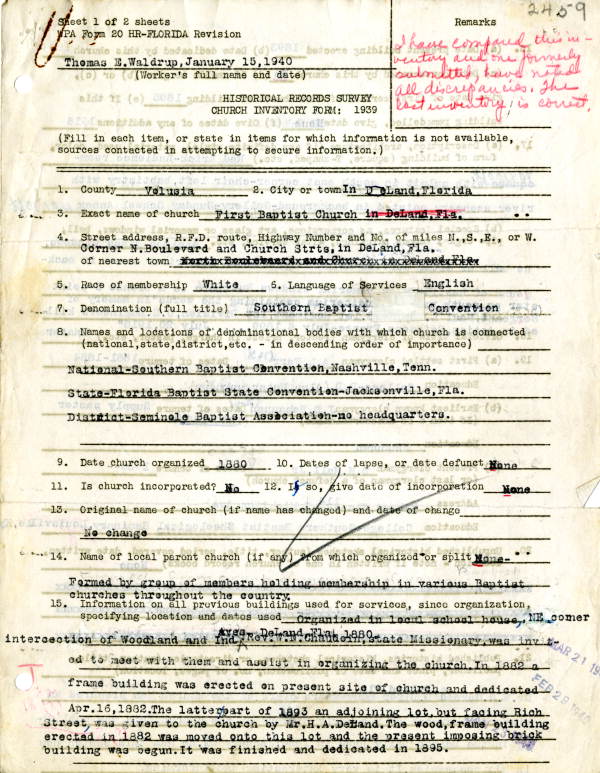 2459
Sheet 1 of 2 sheets
WPA Form 20 HR-FLORIDA Revision
Remarks
Thomas E.Waldrup,January 15,1940
(Worker's full name and date)
I have compared this in-
ventory and one formerly
submitted, have noted
all discrepancies. The
last inventory is correct.
HISTORICAL RECORDS SURVEY
CHURCH INVENTORY FORM; 1939
(Fill in each item, or state in items for which information is not available,
sources contacted in attempting to secure information.)
1. County Volusia 2. City or town In DeLand,Florida
3. Exact name of church First Baptist Church in DeLand,Fla.
4. Street address, R.F.D. route, Highway Number and No. of miles N.,S.,E., or W.
Corner N.Boulevard and Church Strts,in DeLand,Fla.
of nearest town North Boulevard and Church in DeLand,Fla
5. Race of membership White 6. Language of Services English
7. Denomination (full title) Southern Baptist Convention
8. Names and locations of denominational bodies with which church is connected
(national,state,district,etc. - in descending order of importance)
National-Southern Baptist Convention,Nashville,Tenn.
State-Florida Baptist State Convention-Jacksonville,Fla.
District-Seminole Baptist Association-no headquarters.
9. Date church organized 1880 10. Dates of lapse, or date defunct None
11. Is church incorporated? No 12. If so, give date of incorporation None
13. Original name of church (if name has changed) and date of change
No change
14. Name of local parent church (if any) from which organized or split None-
Formed by group of members holding membership in various Baptist
churches throughout the country.
15. Information on all previous buildings used for services, since organization,
specifying location and dates used Organized in local school house, NE corner
intersection of Woodland and Ind. Aves. DeLand,Fla. 1880. Rev.W.N.Chaudoin,state Missionary,was invit
ed to meet with them and assist in organizing the church.In 1882 a
frame building was erected on present site of church and dedicated
Apr.16,1882.The latter part of 1893 an adjoining lot,but facing Rich
Street,was given to the church by Mr.H.A.DeLand.The wood,frame building
erected in 1882 was moved onto this lot and the present imposing brick
building was begun.It was finished and dedicated in 1895.
MAR 21 19
FEB 29 1940